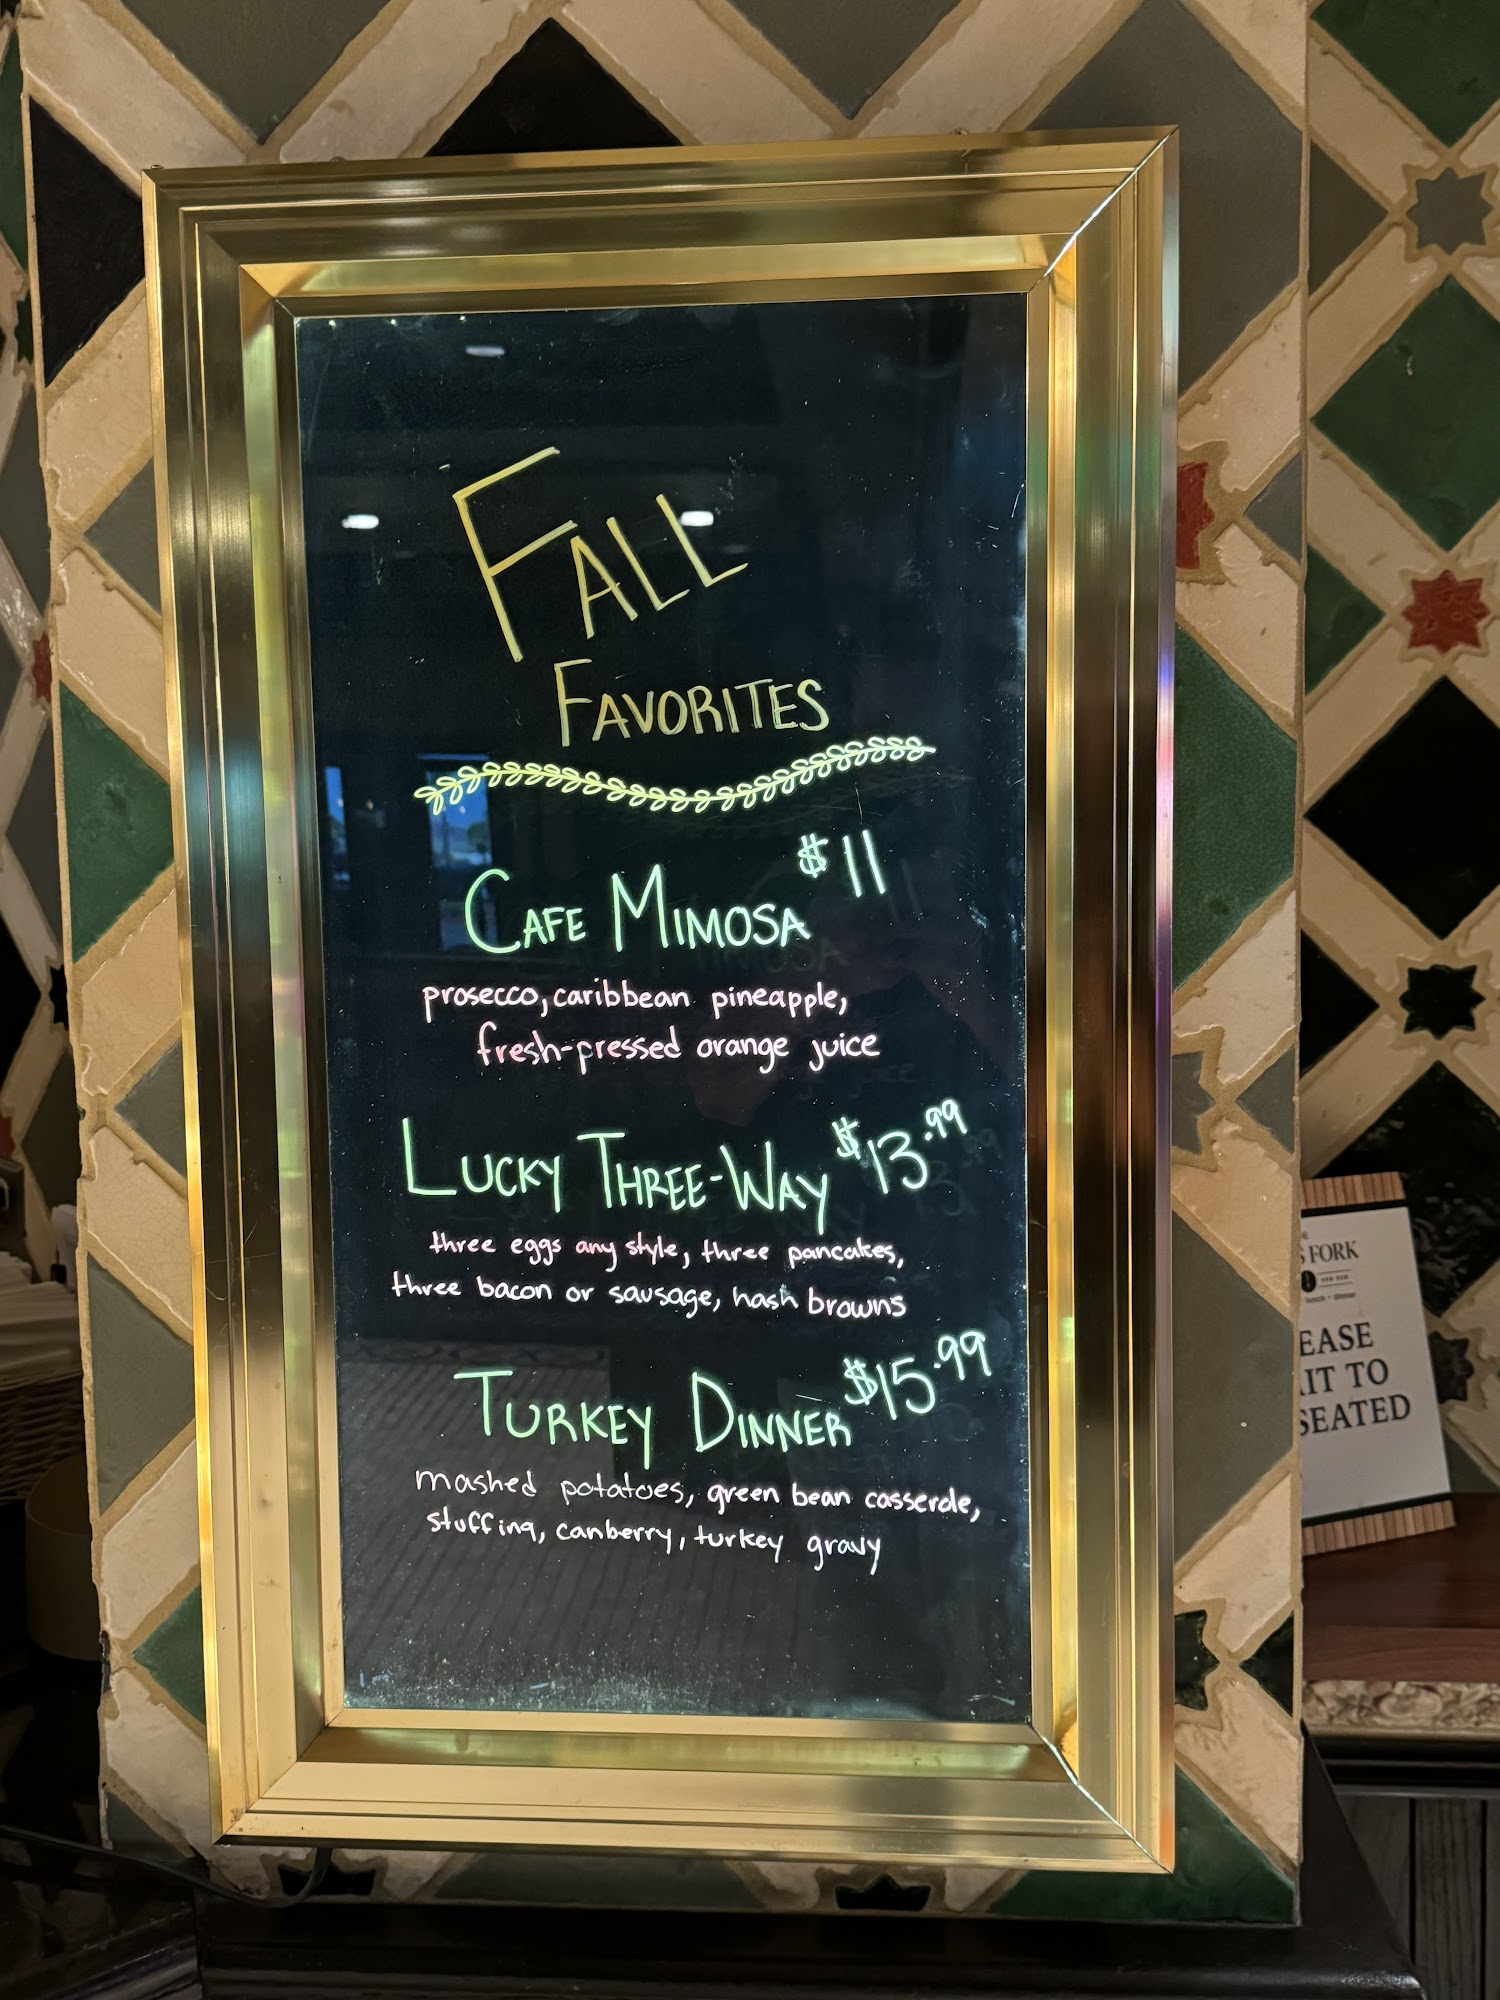 FALL
FAVORITES
CAFE MIMOSA $11
prosecco, caribbean pineapple,
fresh-pressed orange juice
LUCKY THREE-WAY $13.99
three eggs any style, three pancakes,
three bacon or sausage, hash browns
TURKEY DINNER $15.99
mashed potatoes, green bean casserole,
stuffing, canberry, turkey gravy
FORK
lunch • dinner
EASE
IT TO
SEATED